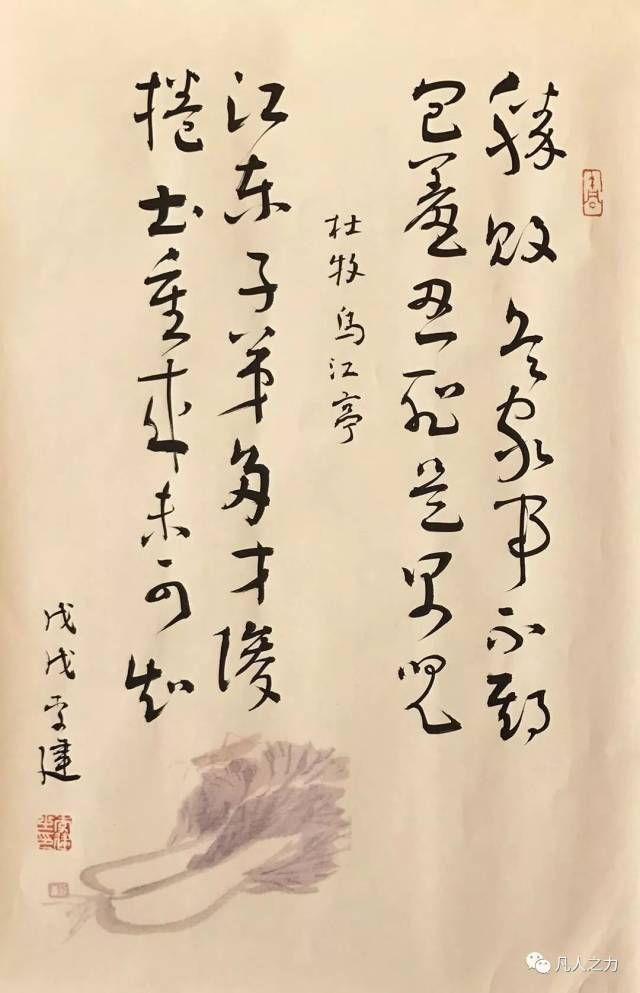 勝敗兵家事不期
包羞忍耻是男兒
杜牧乌江亭
江东子弟多才俊
捲土重来未可知
戊戌
凡人之力